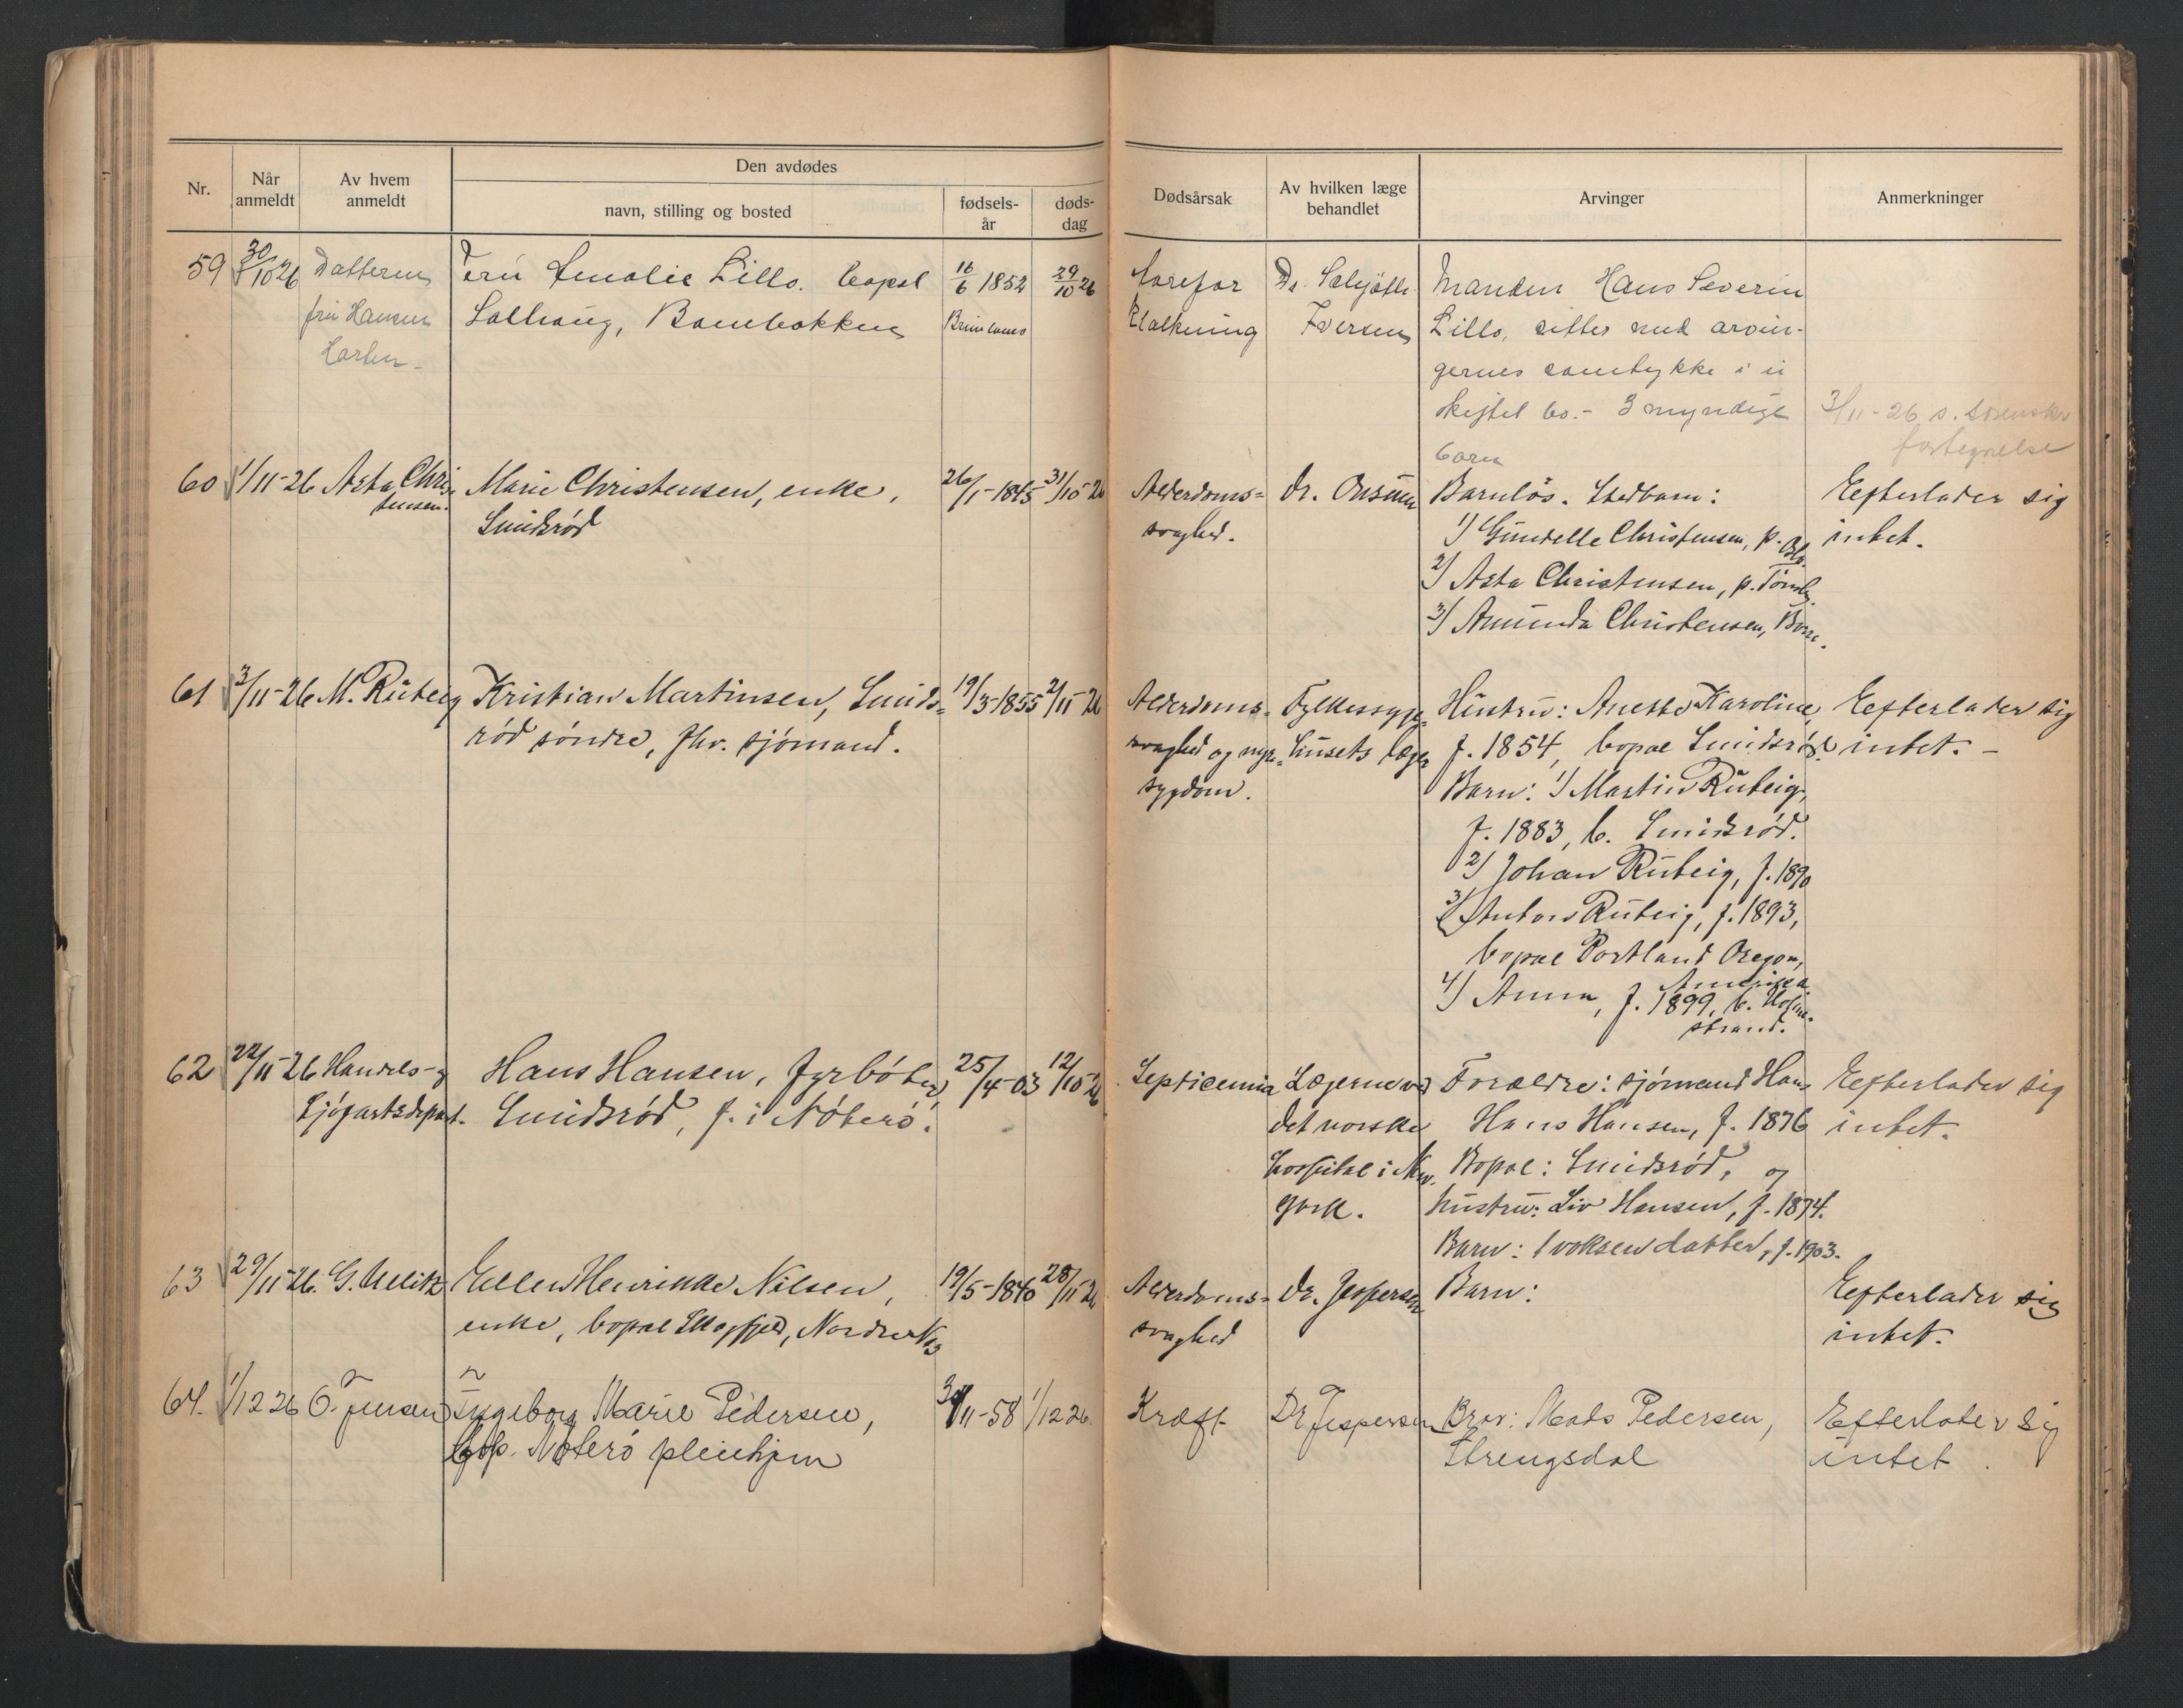 Nr.
Når anmeldt
Av hvem anmeldt
Den avdødes
navn, stilling og bosted
fødsels-år
døds-dag
Dødsårsak
Av hvilken læge behandlet
Arvinger
Anmerkninger
59 30/10 26 Datteren Fru Amalie Lillo. bopel 16/6 1852 29/10 26 Dr. Iversen Manden Hans Severin
fru Hansen Solhaug, Bambakken Lillo, sitter med arvin-
gernes samtykke i u
skiftet bo. - 3 myndige 3/11-26 s.
barn
60 1/11-26 Asta Chris- Marie Christensen, enke, 26/1-1845 31/10-26 Alderdoms- dr. Barnløs. Stedbarn: Efterlader sig
tensen. Smidsrød svaghed. 1) Gundelle Christensen, p. intet.
2) Asta Christensen, p. Tønsbg.
3) Amunda Christensen, Borre.
61 3/11-26 M. Rubeig Kristian Martinsen, Smids- 19/3-1855 2/11-26 Alderdoms- Fylkessyge- Hustru: Anette Karoline, Efterlader sig
rød søndre, fhv. sjømand. svaghed og nyre- husets læge f. 1854, bopæl Smidsrød. intet. -
sygdom. Barn: 1) Martin Rubeig,
f. 1883, b. Smidsrød.
2) Johan Rubeig, f. 1890
3) Anton Rubeig, f. 1893,
bopæl Portland Oregon,
Amerika
4) Anna, f. 1899, b. Holme-
strand.
62 22/11-26 Handels- og Hans Hansen, fyrbøter, 25/4-03 12/10-26 Septicemia Lægerne ved Forældre: sjømand Hans Efterlader sig
Sjøfartsdepart. Smidsrød, f. i Nøterø. det norske Hans Hansen, f. 1876 intet.
hospital i New- Bopæl: Smidsrød, og
york. hustru: Liv Hansen, f. 1874.
Barn: 1 voksen datter, f. 1903.
63 29/11-26. G. Ellen Henrikke Nilsen, 19/5-1840 28/11-26 Alderdoms- dr. Jespersen Barn: Efterlader sig
enke, bopæl Skogfjed, Nordre svaghed intet.
64. 1/12 26 O. Jensen Ingeborg Marie Pedersen, 30/11-58 1/12 26. Kræft Dr Jespersen Bror: Mads Pedersen, Efterlater sig
bop. Nøterø pleiehjem Strengsdal intet.